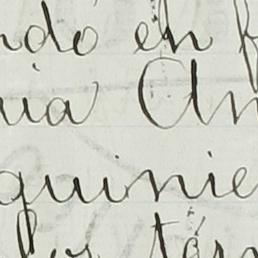 ndo en f
ia An
quinie
los tér